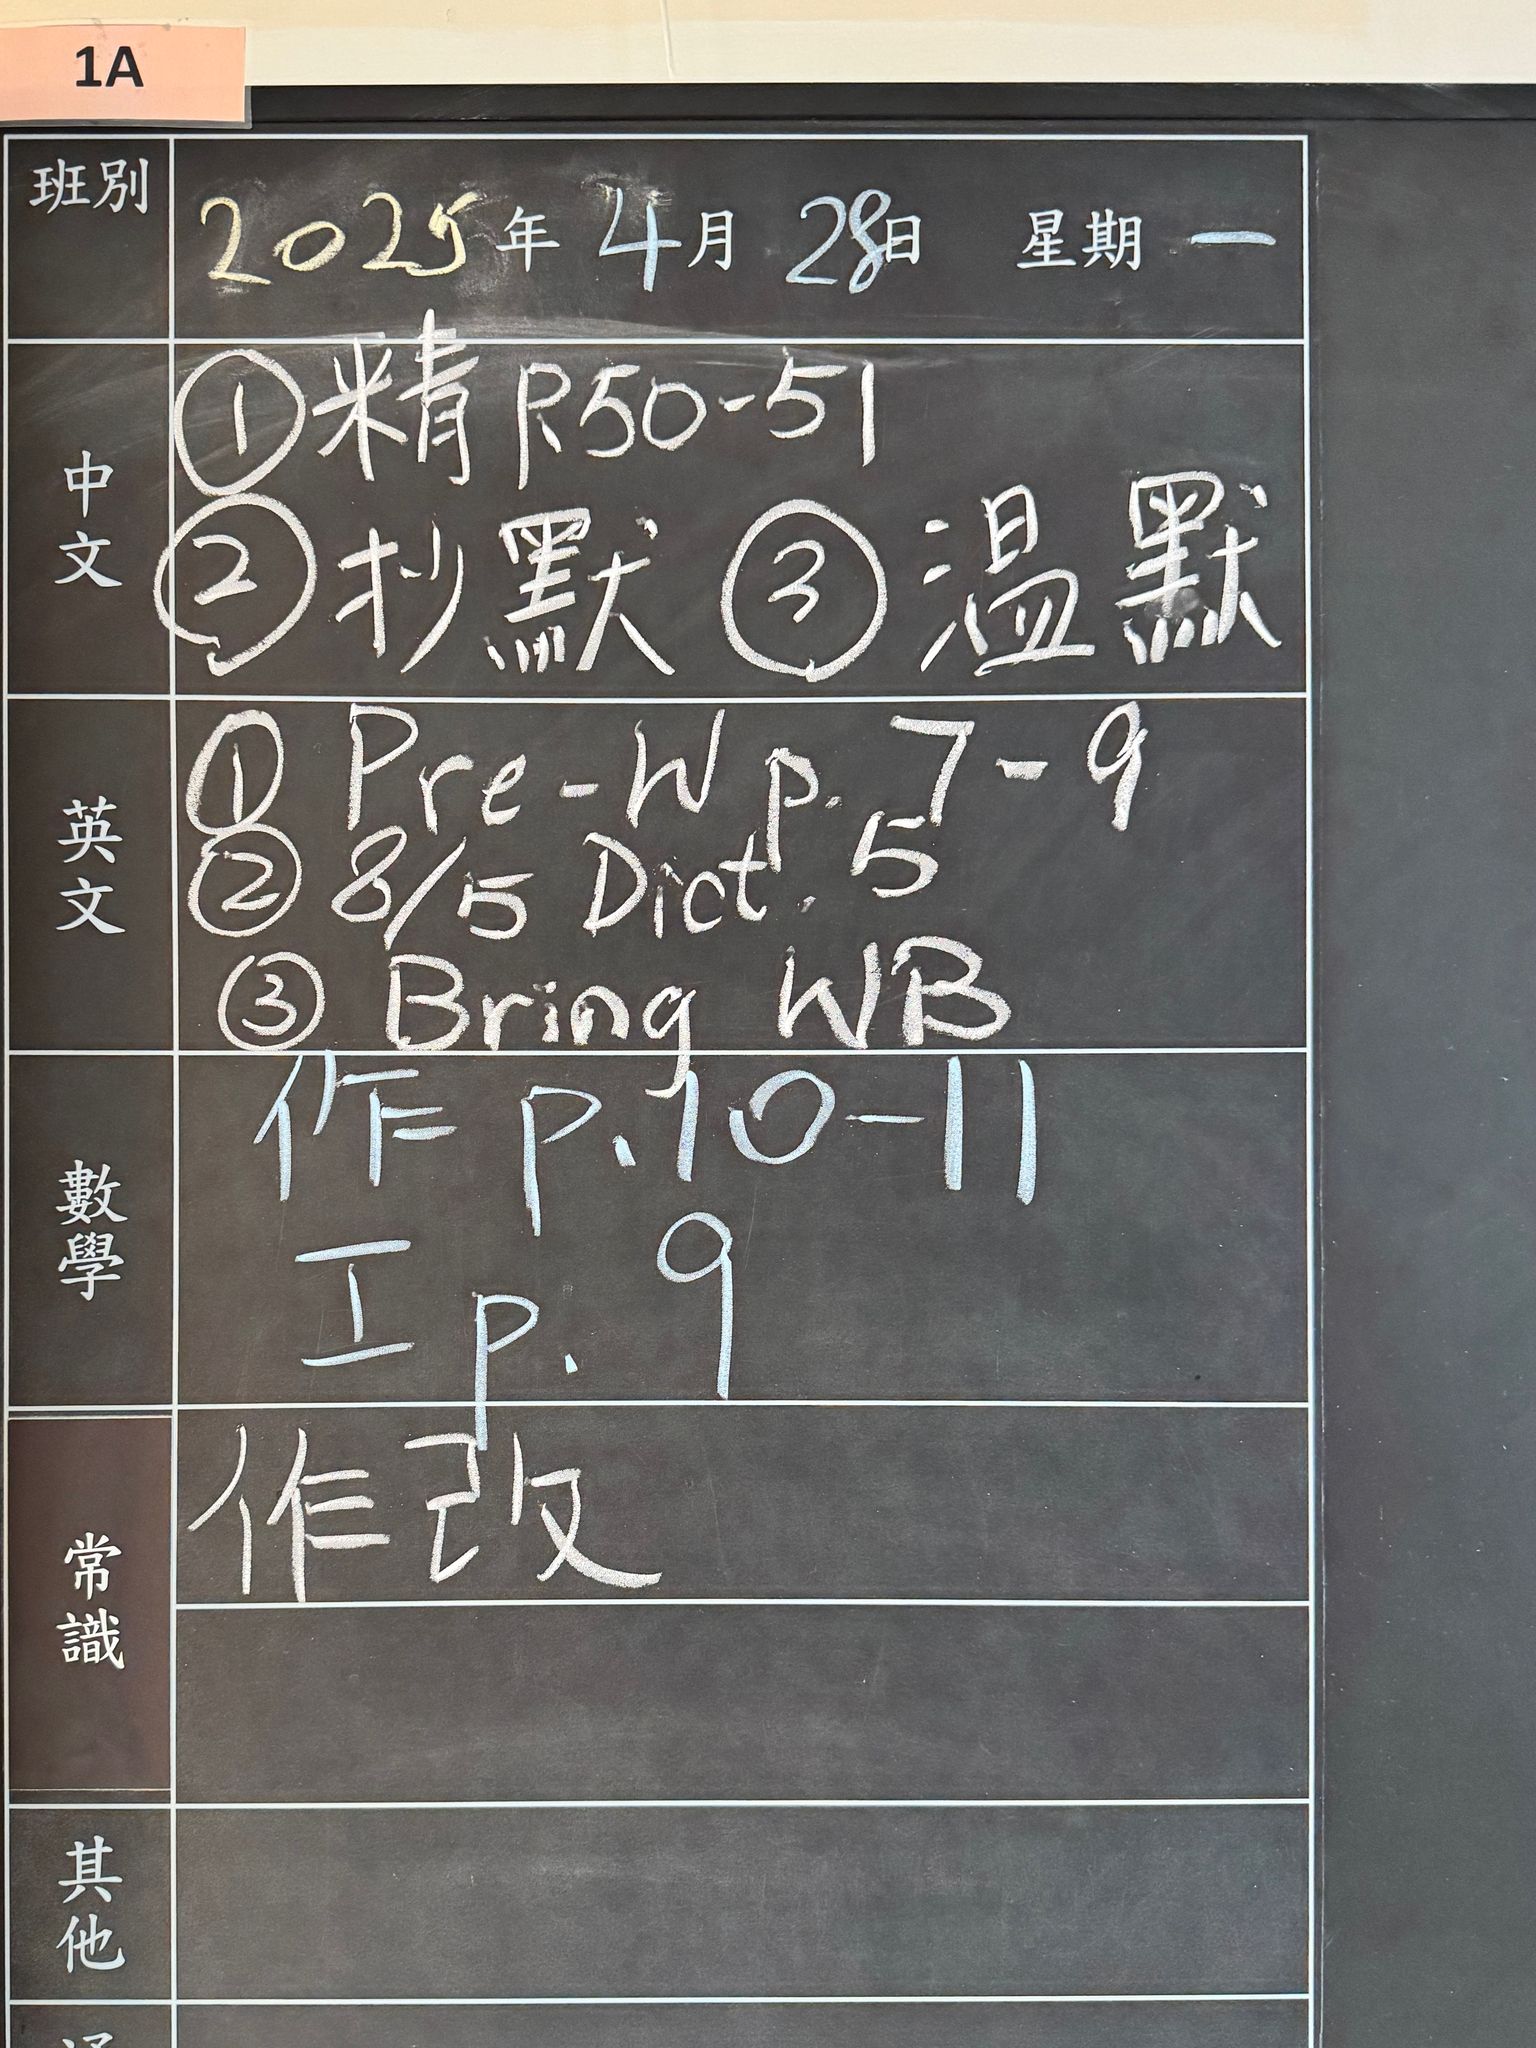 1A
班別 2025年 4月 28日 星期一
中文
①精 P.50-51
②抄默 ③溫默
英文
① Pre-W p. 7-9
② 8/5 Dict. 5
③ Bring WB
數學
作 p.10-11
工 p. 9
常識
作改
其他